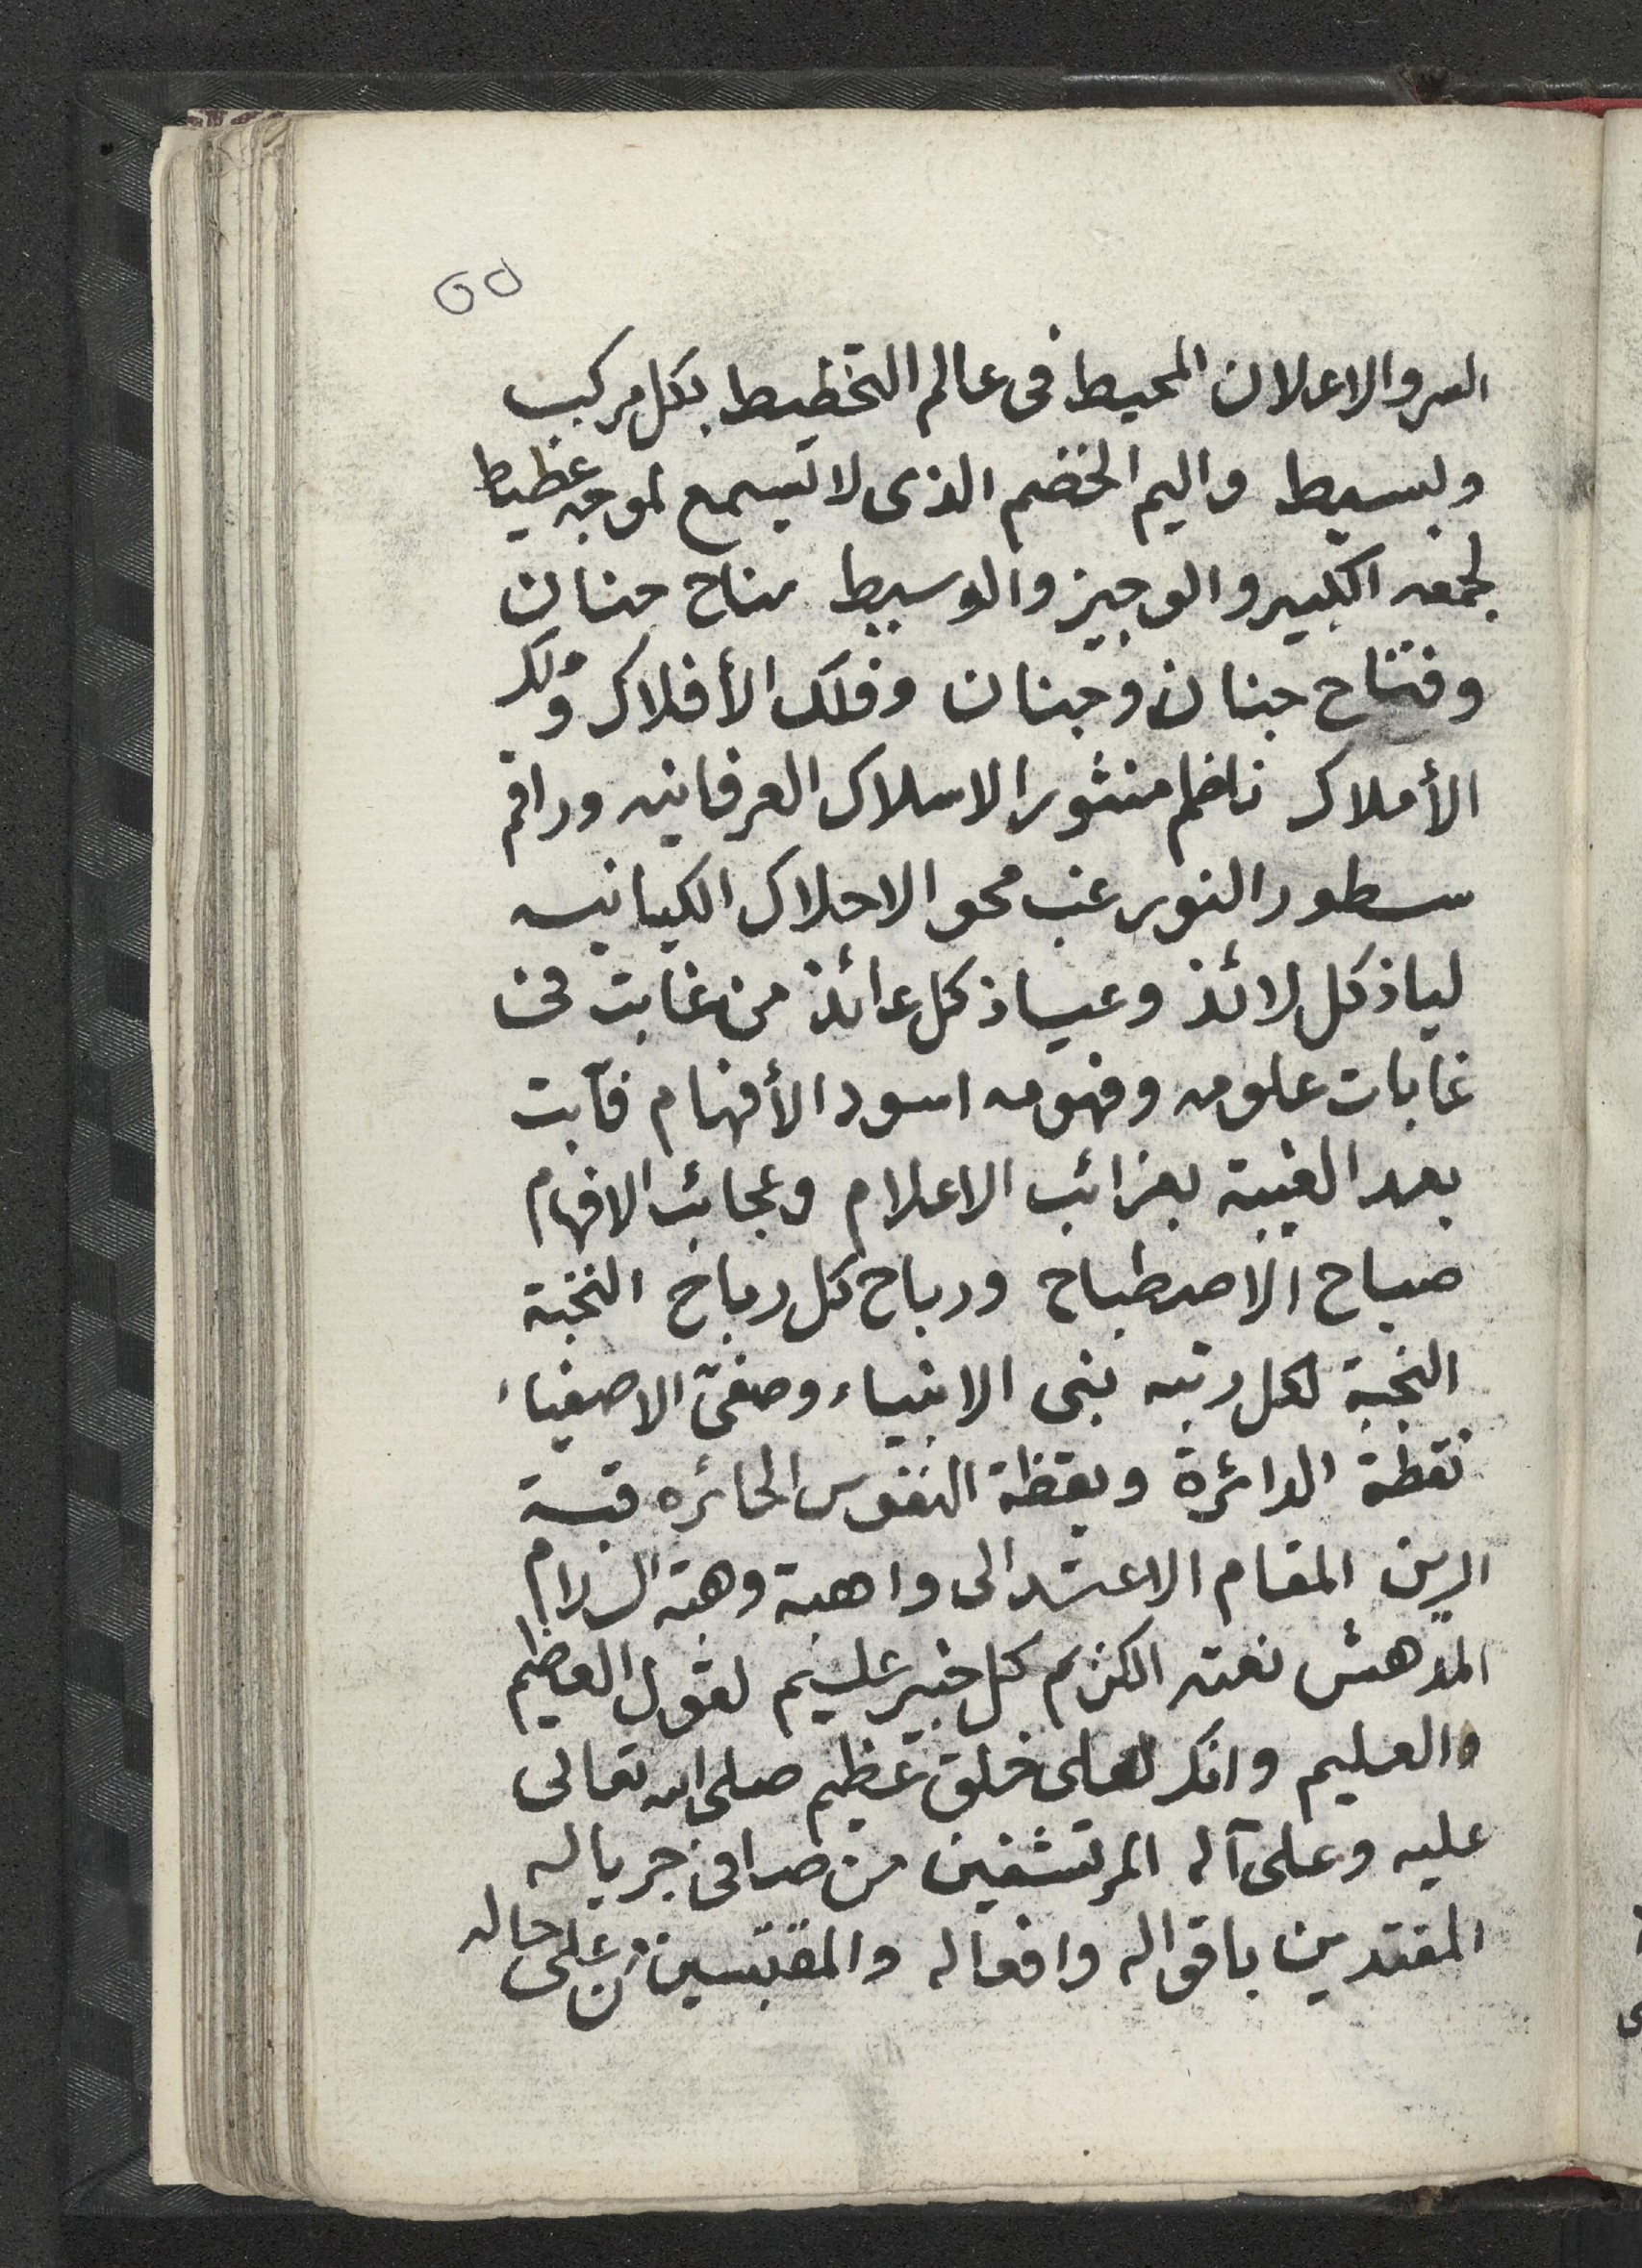 ٥٥
السر والاعلان المحيط فى عالم التخطيط بكل مركب
وبسيط واليم الخضم الذى لا تسمع لموجه غطيط
لجمعه الكبير والوجيز والوسيط مناح حنان
وفتاح جنان وجنان وفلك الأفلاك وملك
الأملاك ناظم منثور الاسلاك العرفانيه وراقم
سطور النور غب محو الاحلاك الكيانيه
لياذ كل لائذ وعياذ كل عائذ من غابت فى
غابات علومه وفهومه اسود الأفهام فآبت
بعد الغيبة بغرائب الاعلام وعجائب الافهام
صباح الاصطباح ورباح كل رباح النخبة
النجبة لكل رتبه نبى الانبياء وصفىّ الاصفياء
نقطة الدائرة ويقظة النفوس الحائره قبة
ارين المقام الاعتدالى واهبة وهبة السلام
المدهش نعته الكريم كل خبير عليم لقول العظيم
والعليم وانك لعلى خلق عظيم صلى الله تعالى
عليه وعلى آله المرتشفين من صافى جرياله
المقتدين باقواله وافعاله والمقتبسين من على حاله